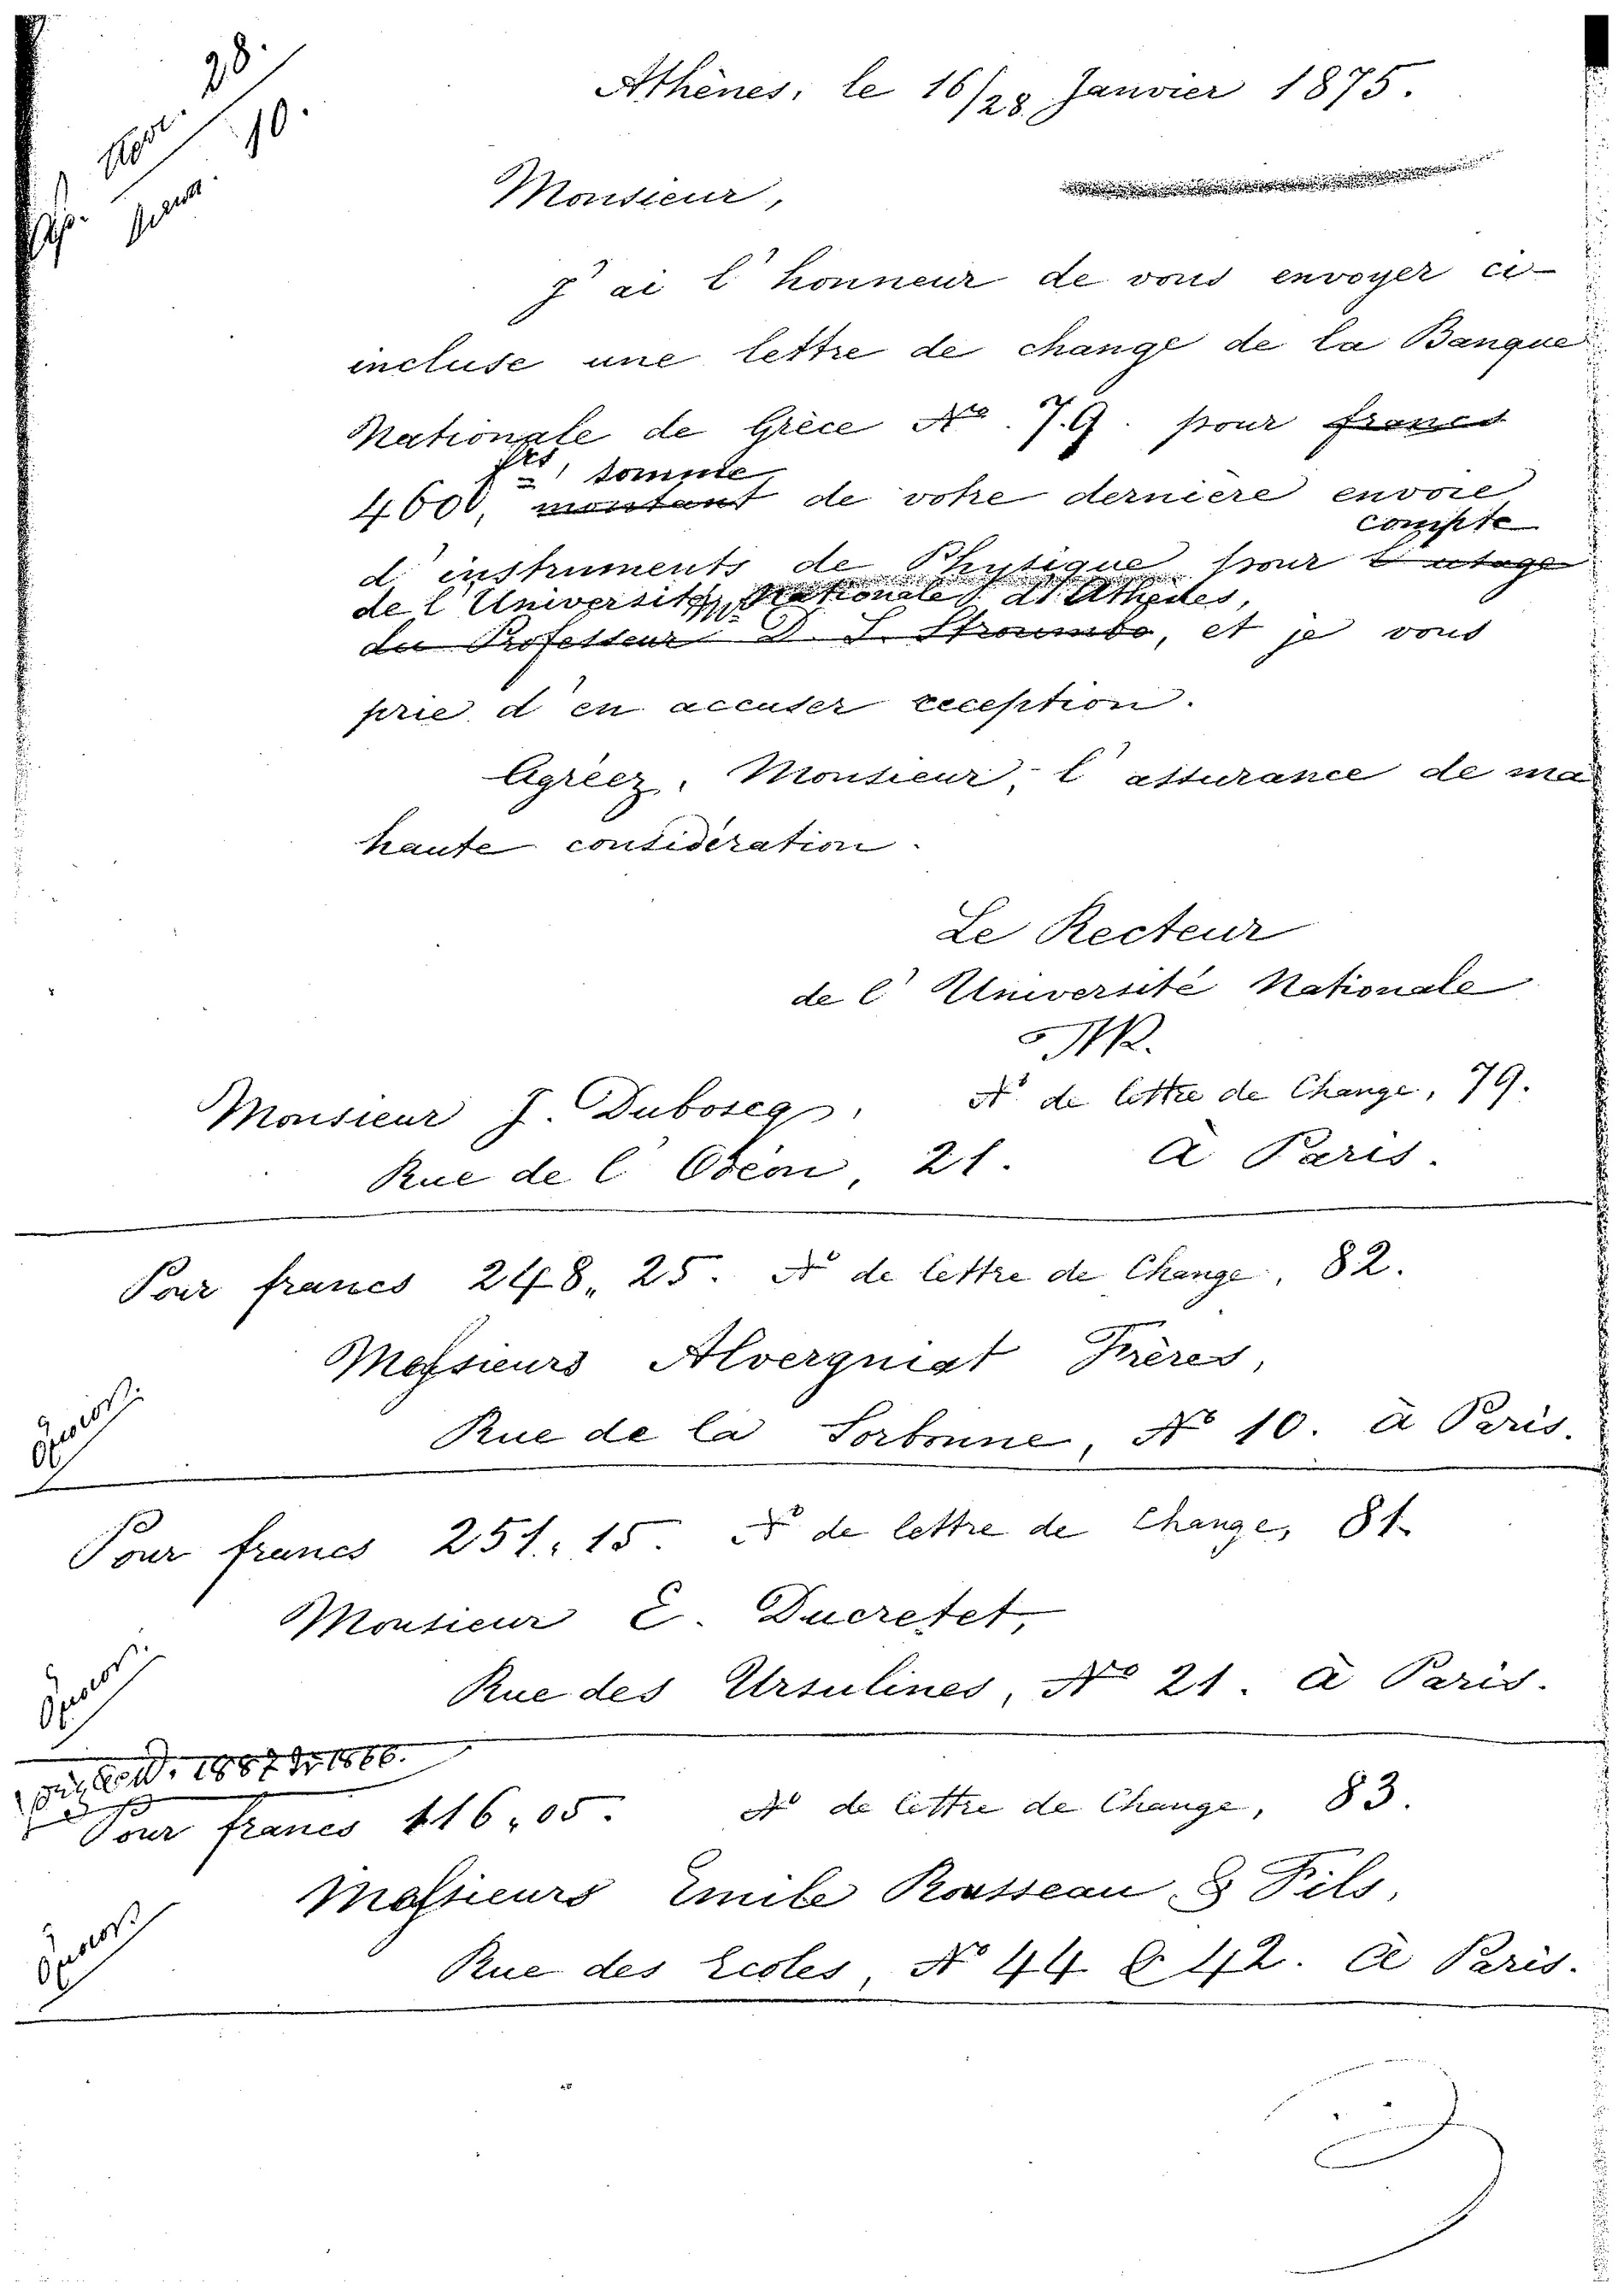 28.
10.
Athènes, le 16/28 Janvier 1875.
Monsieur,
J'ai l'honneur de vous envoyer ci-
incluse une lettre de change de la Banque
Nationale de Grèce No. 79. pour francs
frcs, somme
4600, montant de votre dernière envoie
compte
d'instruments de Physique pour l'
de l'Université Nationale d'Athènes,
du Professeur D. S. Stroumbo, et je vous
prie d'en accuser reception.
Agréez, Monsieur, l'assurance de ma
haute considération.
Le Recteur
de l'Université Nationale
No de lettre de Change, 79.
Monsieur J. Duboscq,
Rue de l'Odéon, 21. à Paris.
Pour francs 248,,25. No de lettre de Change, 82.
Messieurs Alvergniat Frères,
Rue de la Sorbonne, No 10. à Paris.
Pour francs 251,,15. No de lettre de Change, 81.
Monsieur E. Ducretet,
Rue des Ursulines, No 21. à Paris.
Pour francs 116,,05. No de lettre de Change, 83.
Messieurs Emile Rousseau & Fils,
Rue des Ecoles, No 44 & 42. à Paris.